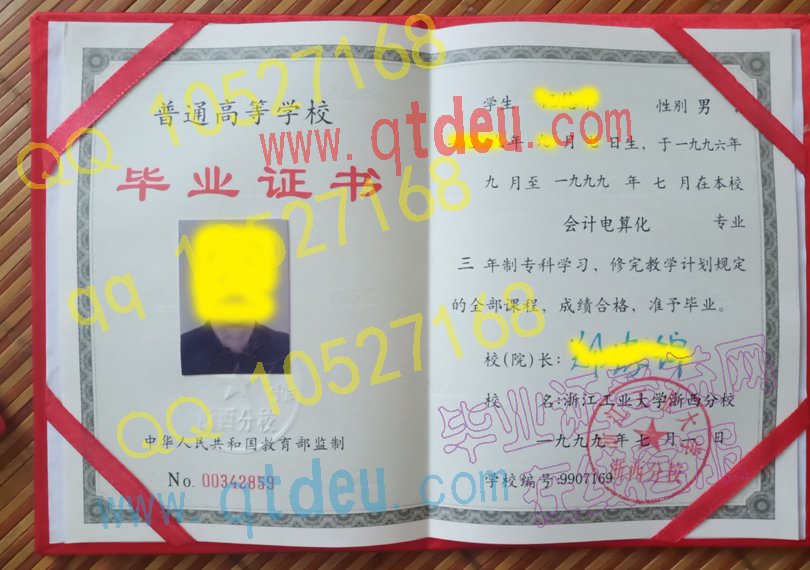 普通高等学校
毕业证书
西分校
中华人民共和国教育部监制
No. 00342859
学生 性别 男 ,
年 月 日生, 于一九九六年
九 月至 一九九九 年 七 月在本校
会计电算化 专业
三 年制专科学习, 修完教学计划规定
的全部课程, 成绩合格, 准予毕业。
校(院)长:
校 名:浙江工业大学浙西分校
一九九九 年 七 月 一 日
学校编号:9907169
浙西分校
QQ 10527168
www.qtdeu.com
qq 10527168
QQ 10527168
www.qtdeu.com
毕业证